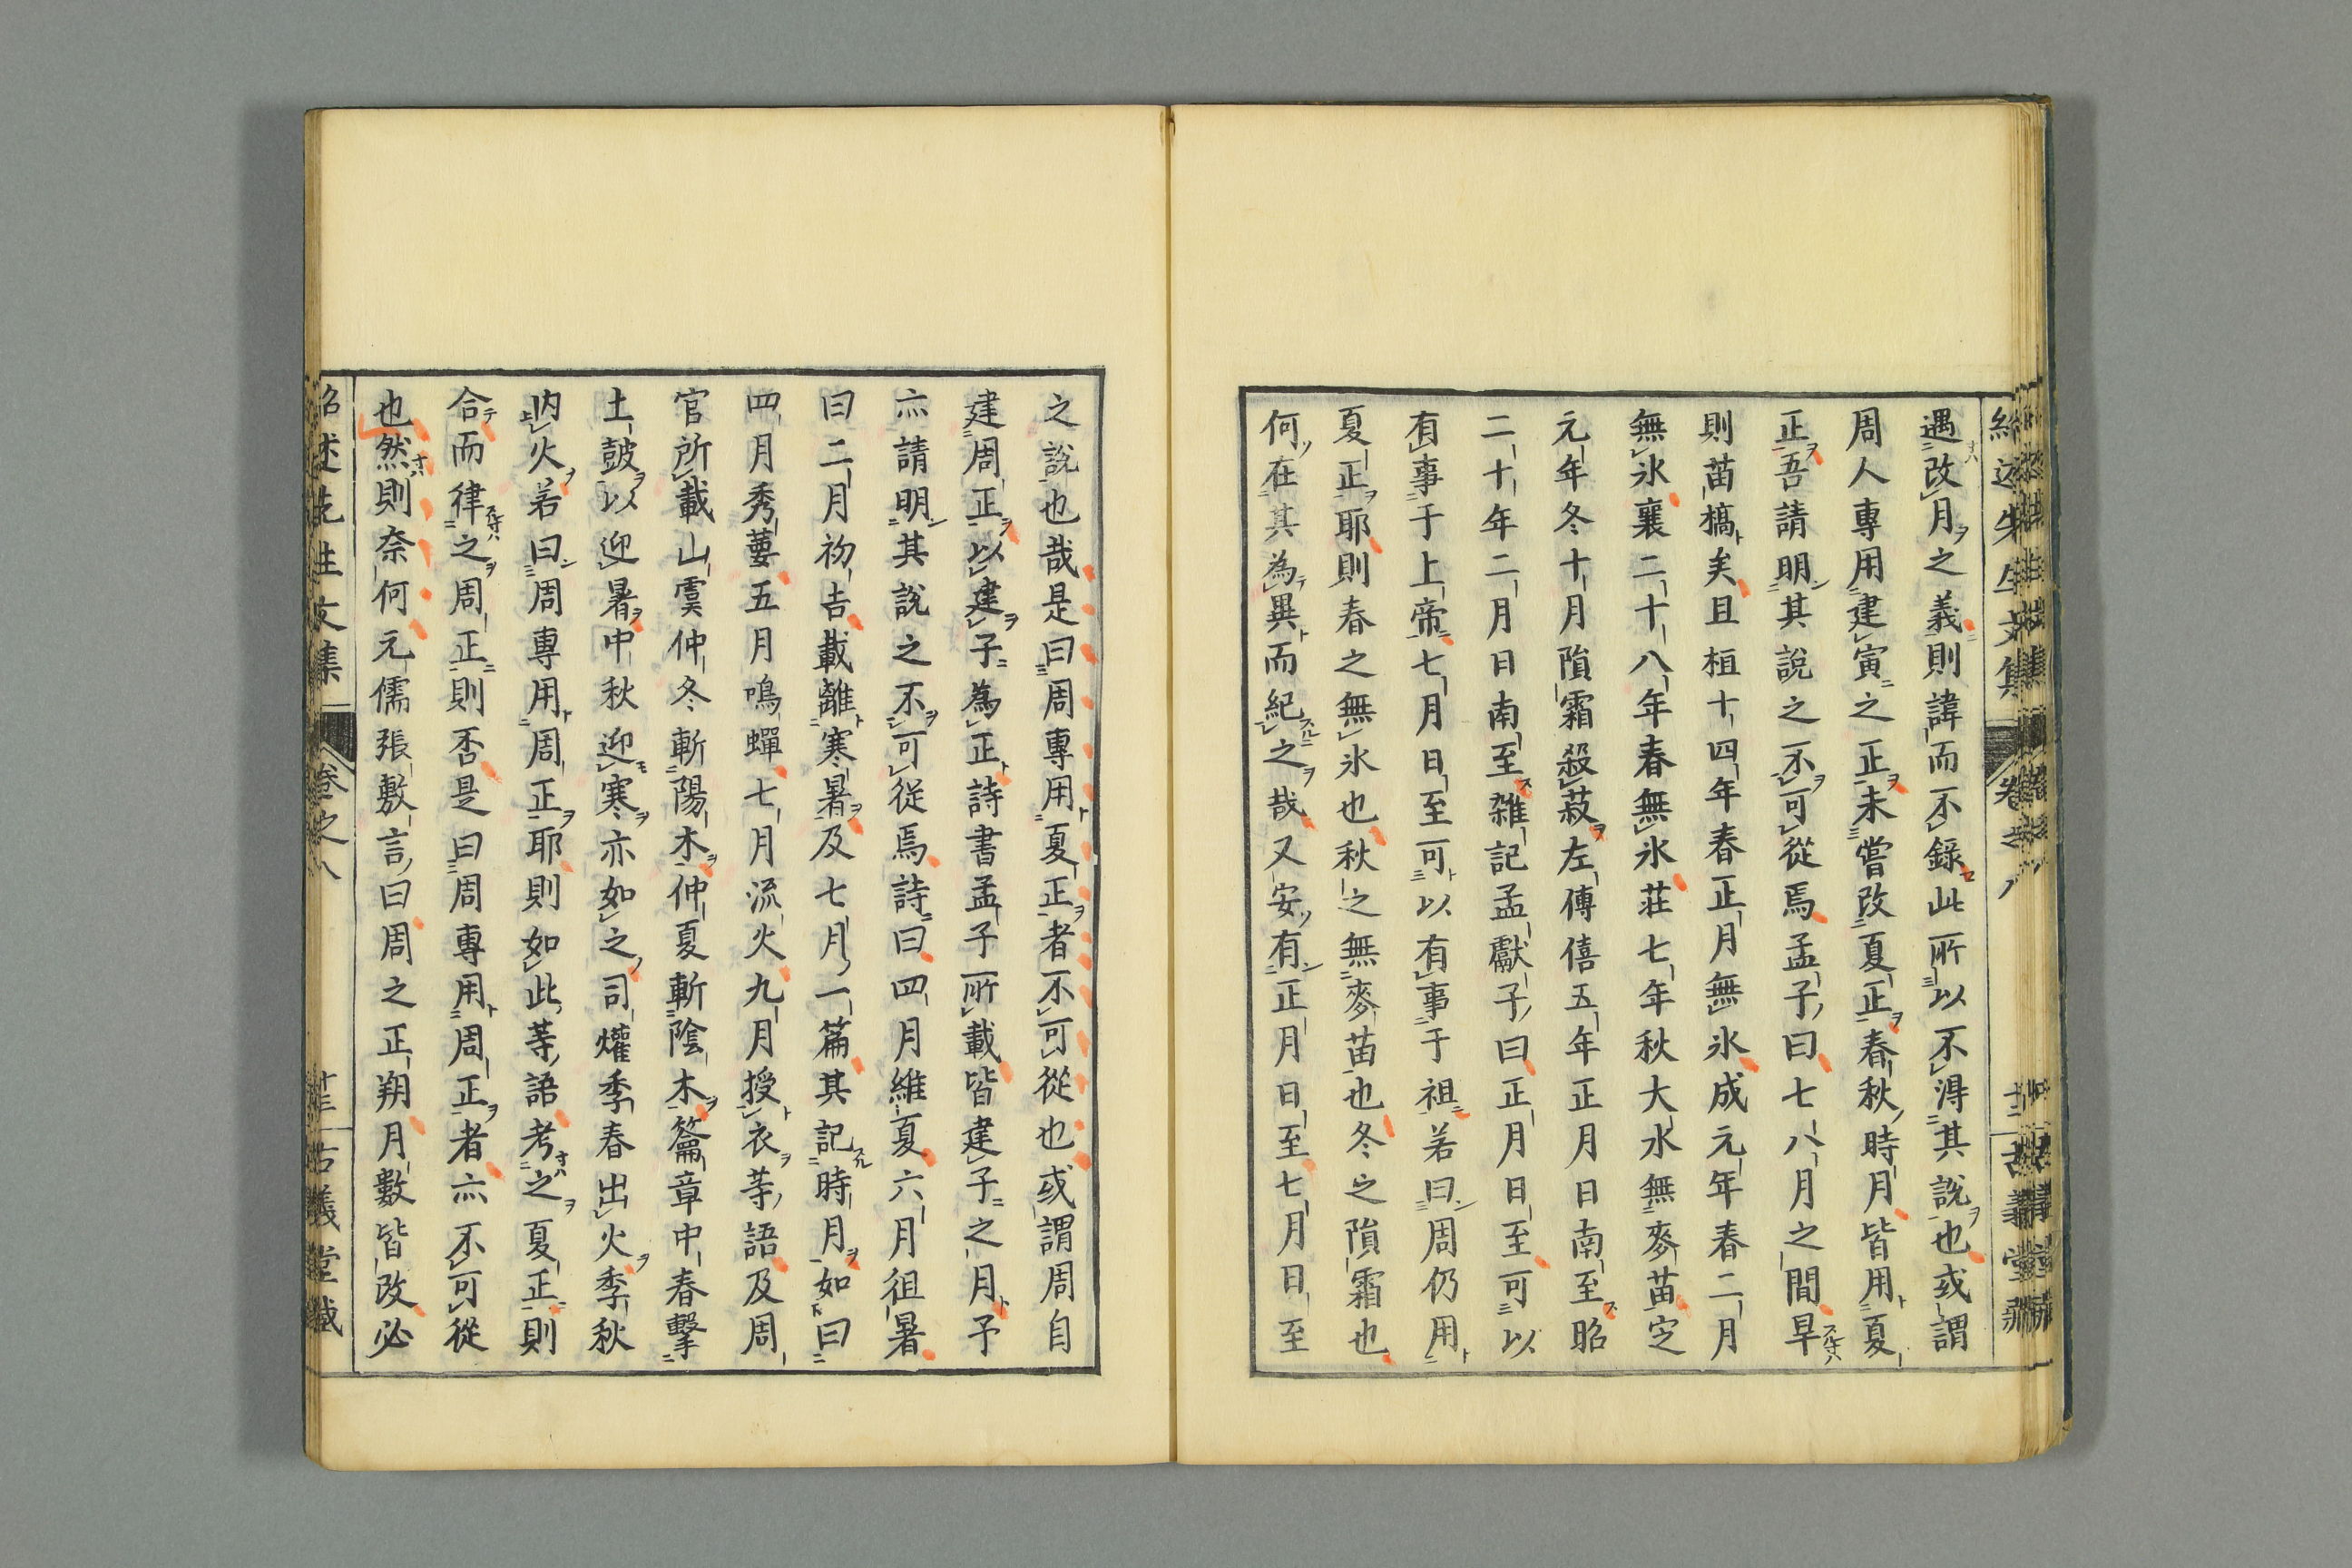 遇改月之義則諱而不錄此所以不得其說也或謂
周人專用建寅之正未嘗改夏正春秋時月皆用夏
正吾請明其說之不可從焉孟子曰七八月之間旱
則苗槁矣且桓十四年春正月無氷成元年春二月
無氷襄二十八年春無氷莊七年秋大水無麥苗定
元年冬十月隕霜殺菽左傳僖五年正月日南至昭
二十年二月日南至雜記孟獻子曰正月日至可以
有事于上帝七月日至可以有事于祖若曰周仍用
夏正耶則春之無氷也秋之無麥苗也冬之隕霜也
何在其為異而紀之哉又安有正月日至七月日至
之說也哉是曰周專用夏正者不可從也或謂周自
建周正以建子為正詩書孟子所載皆建子之月予
亦請明其說之不可從焉詩曰四月維夏六月徂暑
曰二月初吉載離寒暑及七月一篇其記時月如曰
四月秀葽五月鳴蟬七月流火九月授衣等語及周
官所載山虞仲冬斬陽木仲夏斬陰木籥章中春擊
土鼓以迎暑中秋迎寒亦如之司爟季春出火季秋
內火若曰周專用周正耶則如此等語考之夏正則
合而律之周正則否是曰周專用周正者亦不可從
也然則奈何元儒張敷言曰周之正朔月數皆改必
紹述先生文集 卷之八 古義堂藏